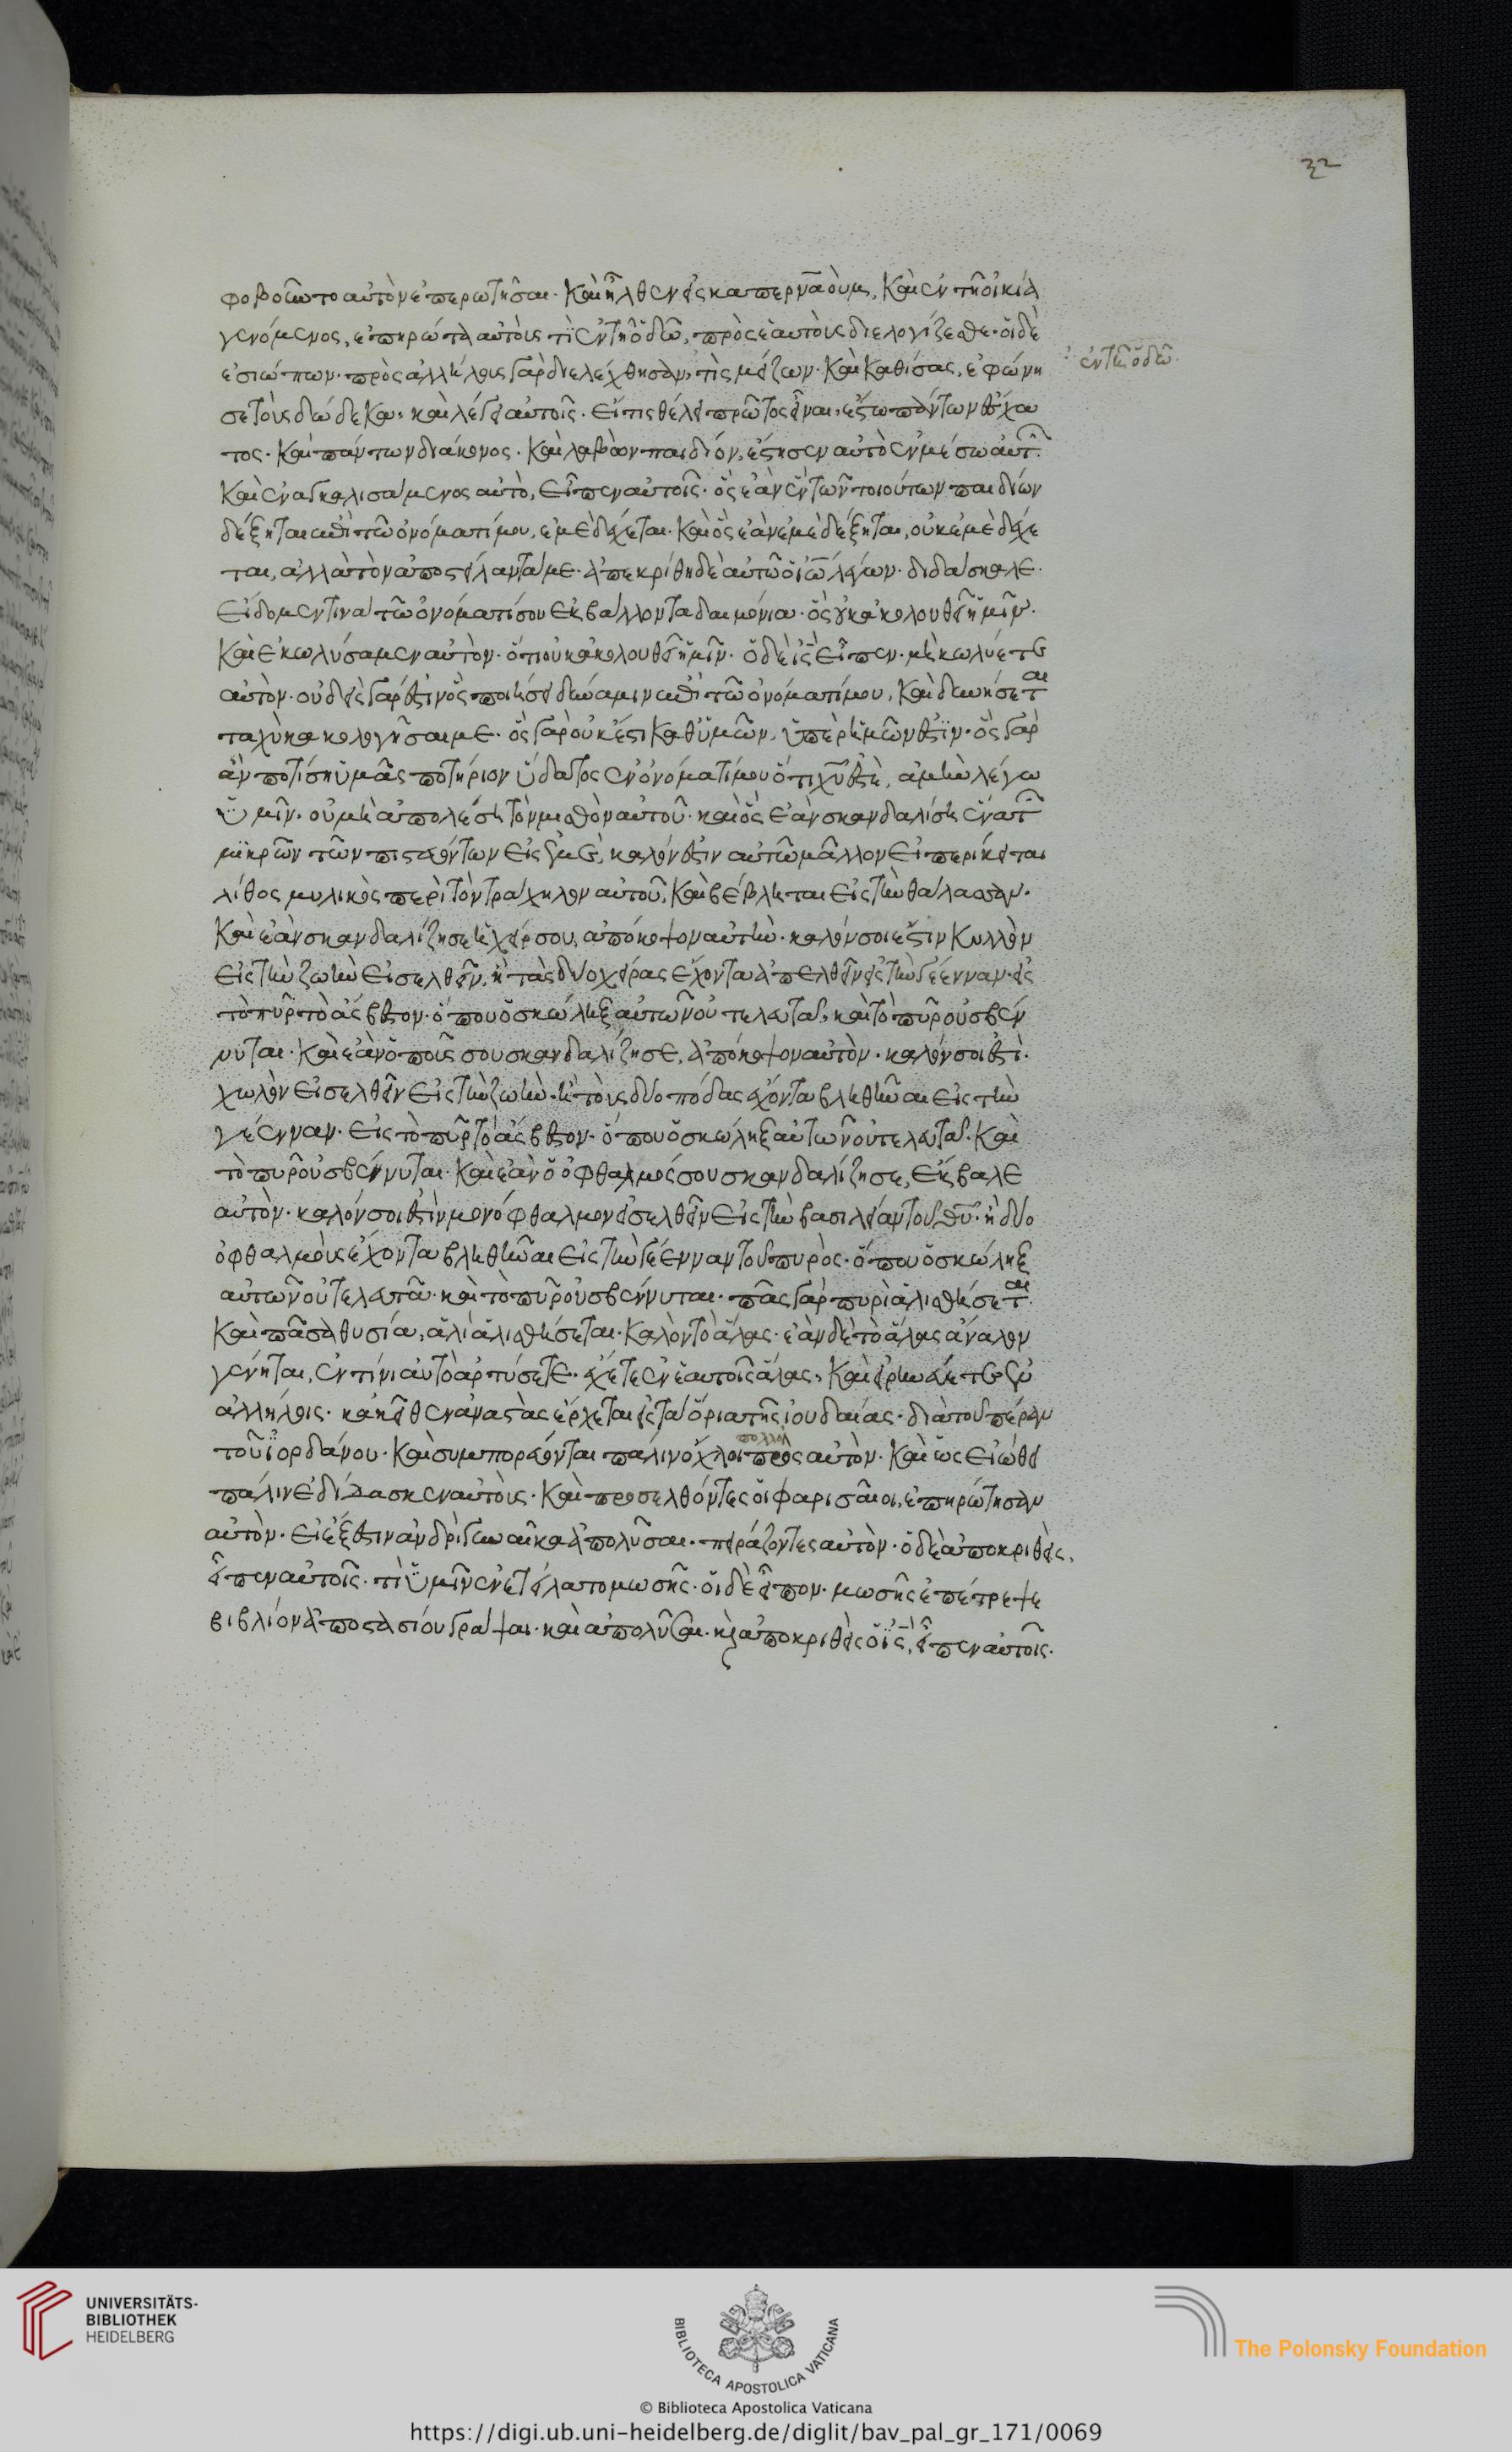 32
φοβοῦντο αὐτὸν ἐπερωτῆσαι· Καὶ ἦλθεν εἰς καπερναοὺμ, Καὶ ἐν τῆ οἰκία
γενόμενος, ἐπηρώτα αὐτοὺς τί ἐν τῆ ὁδῶ, πρὸς ἑαυτοὺς διελογίζεσθε· οἱ δὲ
ἐσιώπων· πρὸς ἀλλήλους γὰρ διελέχθησαν, τίς μείζων· Καὶ καθίσας, ἐφώνη
ἐν τῆ ὁδῶ·
σε τοὺς δώδεκα, καὶ λέγει αὐτοῖς· Εἴ τις θέλει πρῶτος εἶναι, ἔστω πάντων ἔσχα
τος· Καὶ πάντων διάκονος· Καὶ λαβὼν παιδίον, ἔστησεν αὐτὸ ἐν μέσω αὐτ·
Καὶ ἐναγκαλισάμενος αὐτὸ, Εἶπεν αὐτοῖς· ὃς ἐὰν ἓν τῶν τοιούτων παιδίων
δέξηται ἐπὶ τῶ ὀνόματί μου, ἐμὲ δέχεται· Καὶ ὃς ἐὰν ἐμὲ δέξηται, οὐκ ἐμὲ δέχε
ται, ἀλλὰ τὸν ἀποστείλαντά με· ἀπεκρίθη δὲ αὐτῶ ὁ ἰω λέγων· διδάσκαλε·
Εἴδομέν τινα τῶ ὀνόματί σου ἐκβάλλοντα δαιμόνια· ὃς οὐκ ἀκολουθεῖ ἡμῖν·
Καὶ ἐκωλύσαμεν αὐτὸν· ὅτι οὐκ ἀκολουθεῖ ἡμῖν· ὁ δὲ ις Εἶπεν· μὴ κωλύετε
αὐτὸν· οὐδεὶς γάρ ἐστιν ὃς ποιήσει δύναμιν ἐπὶ τῶ ὀνόματί μου, Καὶ δυνήσεται
ταχὺ κακολογῆσαι με· ὃς γὰρ οὐκ ἔστι καθ ὑμῶν, ὑπὲρ ἡμῶν ἐστϊν· ὃς γὰρ
ἂν ποτίση ὑμᾶς ποτήριον ὕδατος ἐν ὀνόματί μου ὅτι χυ ἐστὲ, ἀμὴν λέγω
ὑμῖν· οὐ μὴ ἀπολέση τὸν μισθὸν αὐτοῦ· καὶ ὃς ἐὰν σκανδαλίση ἕνα τ
μϊκρῶν τῶν πιστευόντων εἰς ἐμέ, καλόν ἐστιν αὐτῶ μᾶλλον εἰ περίκειται
λίθος μυλικὸς περὶ τὸν τράχηλον αὐτοῦ, Καὶ βέβληται εἰς τὴν θάλασσαν·
Καὶ ἐὰν σκανδαλίζη σε ἡ χείρ σου, ἀπόκοψον αὐτὴν· καλόν σοι ἐστὶν Κυλλὸν
εἰς τὴν ζωὴν εἰσελθεῖν, ἢ τὰς δύο χεῖρας ἔχοντα ἀπελθεῖν εἰς τὴν γέενναν· εἰς
τὸ πῦρ τὸ ἄσβεστον· ὅπου ὁ σκώληξ αὐτῶν οὐ τελευτᾶ, καὶ τὸ πῦρ οὐ σβέν
νυται· Καὶ ἐὰν ὁ ποῦς σου σκανδαλίζη σε, ἀπόκοψον αὐτὸν· καλόν σοι ἐστὶ·
χωλὸν εἰσελθεῖν εἰς τὴν ζωὴν· ἢ τοὺς δύο πόδας ἔχοντα βληθῆναι εἰς τὴν
γέενναν· εἰς τὸ πῦρ τὸ ἄσβεστον· ὅπου ὁ σκώληξ αὐτῶν οὐ τελευτᾶ· Καὶ
τὸ πῦρ οὐ σβέννυται· Καὶ ἐὰν ὁ ὀφθαλμός σου σκανδαλίζη σε, ἔκβαλε
αὐτὸν· καλόν σοι ἐστὶν μονόφθαλμον εἰσελθεῖν εἰς τὴν βασιλείαν τοῦ θυ· ἢ δύο
ὀφθαλμοὺς ἔχοντα βληθῆναι εἰς τὴν γέενναν τοῦ πυρὸς· ὅπου ὁ σκώληξ
αὐτῶν οὐ τελευτᾶ· καὶ τὸ πῦρ οὐ σβέννυται· πᾶς γὰρ πυρὶ ἁλισθήσεται·
Καὶ πᾶσα θυσία, ἁλὶ ἁλισθήσεται· Καλὸν τὸ ἅλας· ἐὰν δὲ τὸ ἅλας ἄναλον
γένηται, ἐν τίνι αὐτὸ ἀρτύσετε· ἔχετε ἐν ἑαυτοῖς ἅλας, Καὶ εἰρηνεύετε ἐν
ἀλλήλοις· κἀκεῖθεν ἀναστὰς ἔρχεται εἰς τὰ ὅρια τῆς ἰουδαίας· διὰ τοῦ πέραν
πολλοὶ
τοῦ ϊορδάνου· Καὶ συμπορεύονται πάλιν ὄχλοι πρὸς αὐτὸν· Καὶ ὡς εἰώθει
πάλιν ἐδίδασκεν αὐτοὺς· Καὶ προσελθόντες οἱ φαρισαῖοι, ἐπηρώτησαν
αὐτὸν· εἰ ἔξεστιν ἀνδρὶ γυναῖκα ἀπολῦσαι· πειράζοντες αὐτὸν· ὁ δὲ ἀποκριθεὶς,
εἶπεν αὐτοῖς· τί ὑμῖν ἐνετείλατο μωσῆς· οἱ δὲ εἶπον· μωσῆς ἐπέτρεψε
βιβλίον ἀποστασίου γράψαι· καὶ ἀπολῦσαι· κὶ ἀποκριθεὶς ὁ ϊς, εἶπεν αὐτοῖς·
UNIVERSITÄTS-
BIBLIOTHEK
HEIDELBERG
BIBLIOTECA APOSTOLICA VATICANA
© Biblioteca Apostolica Vaticana
The Polonsky Foundation
https://digi.ub.uni-heidelberg.de/diglit/bav_pal_gr_171/0069